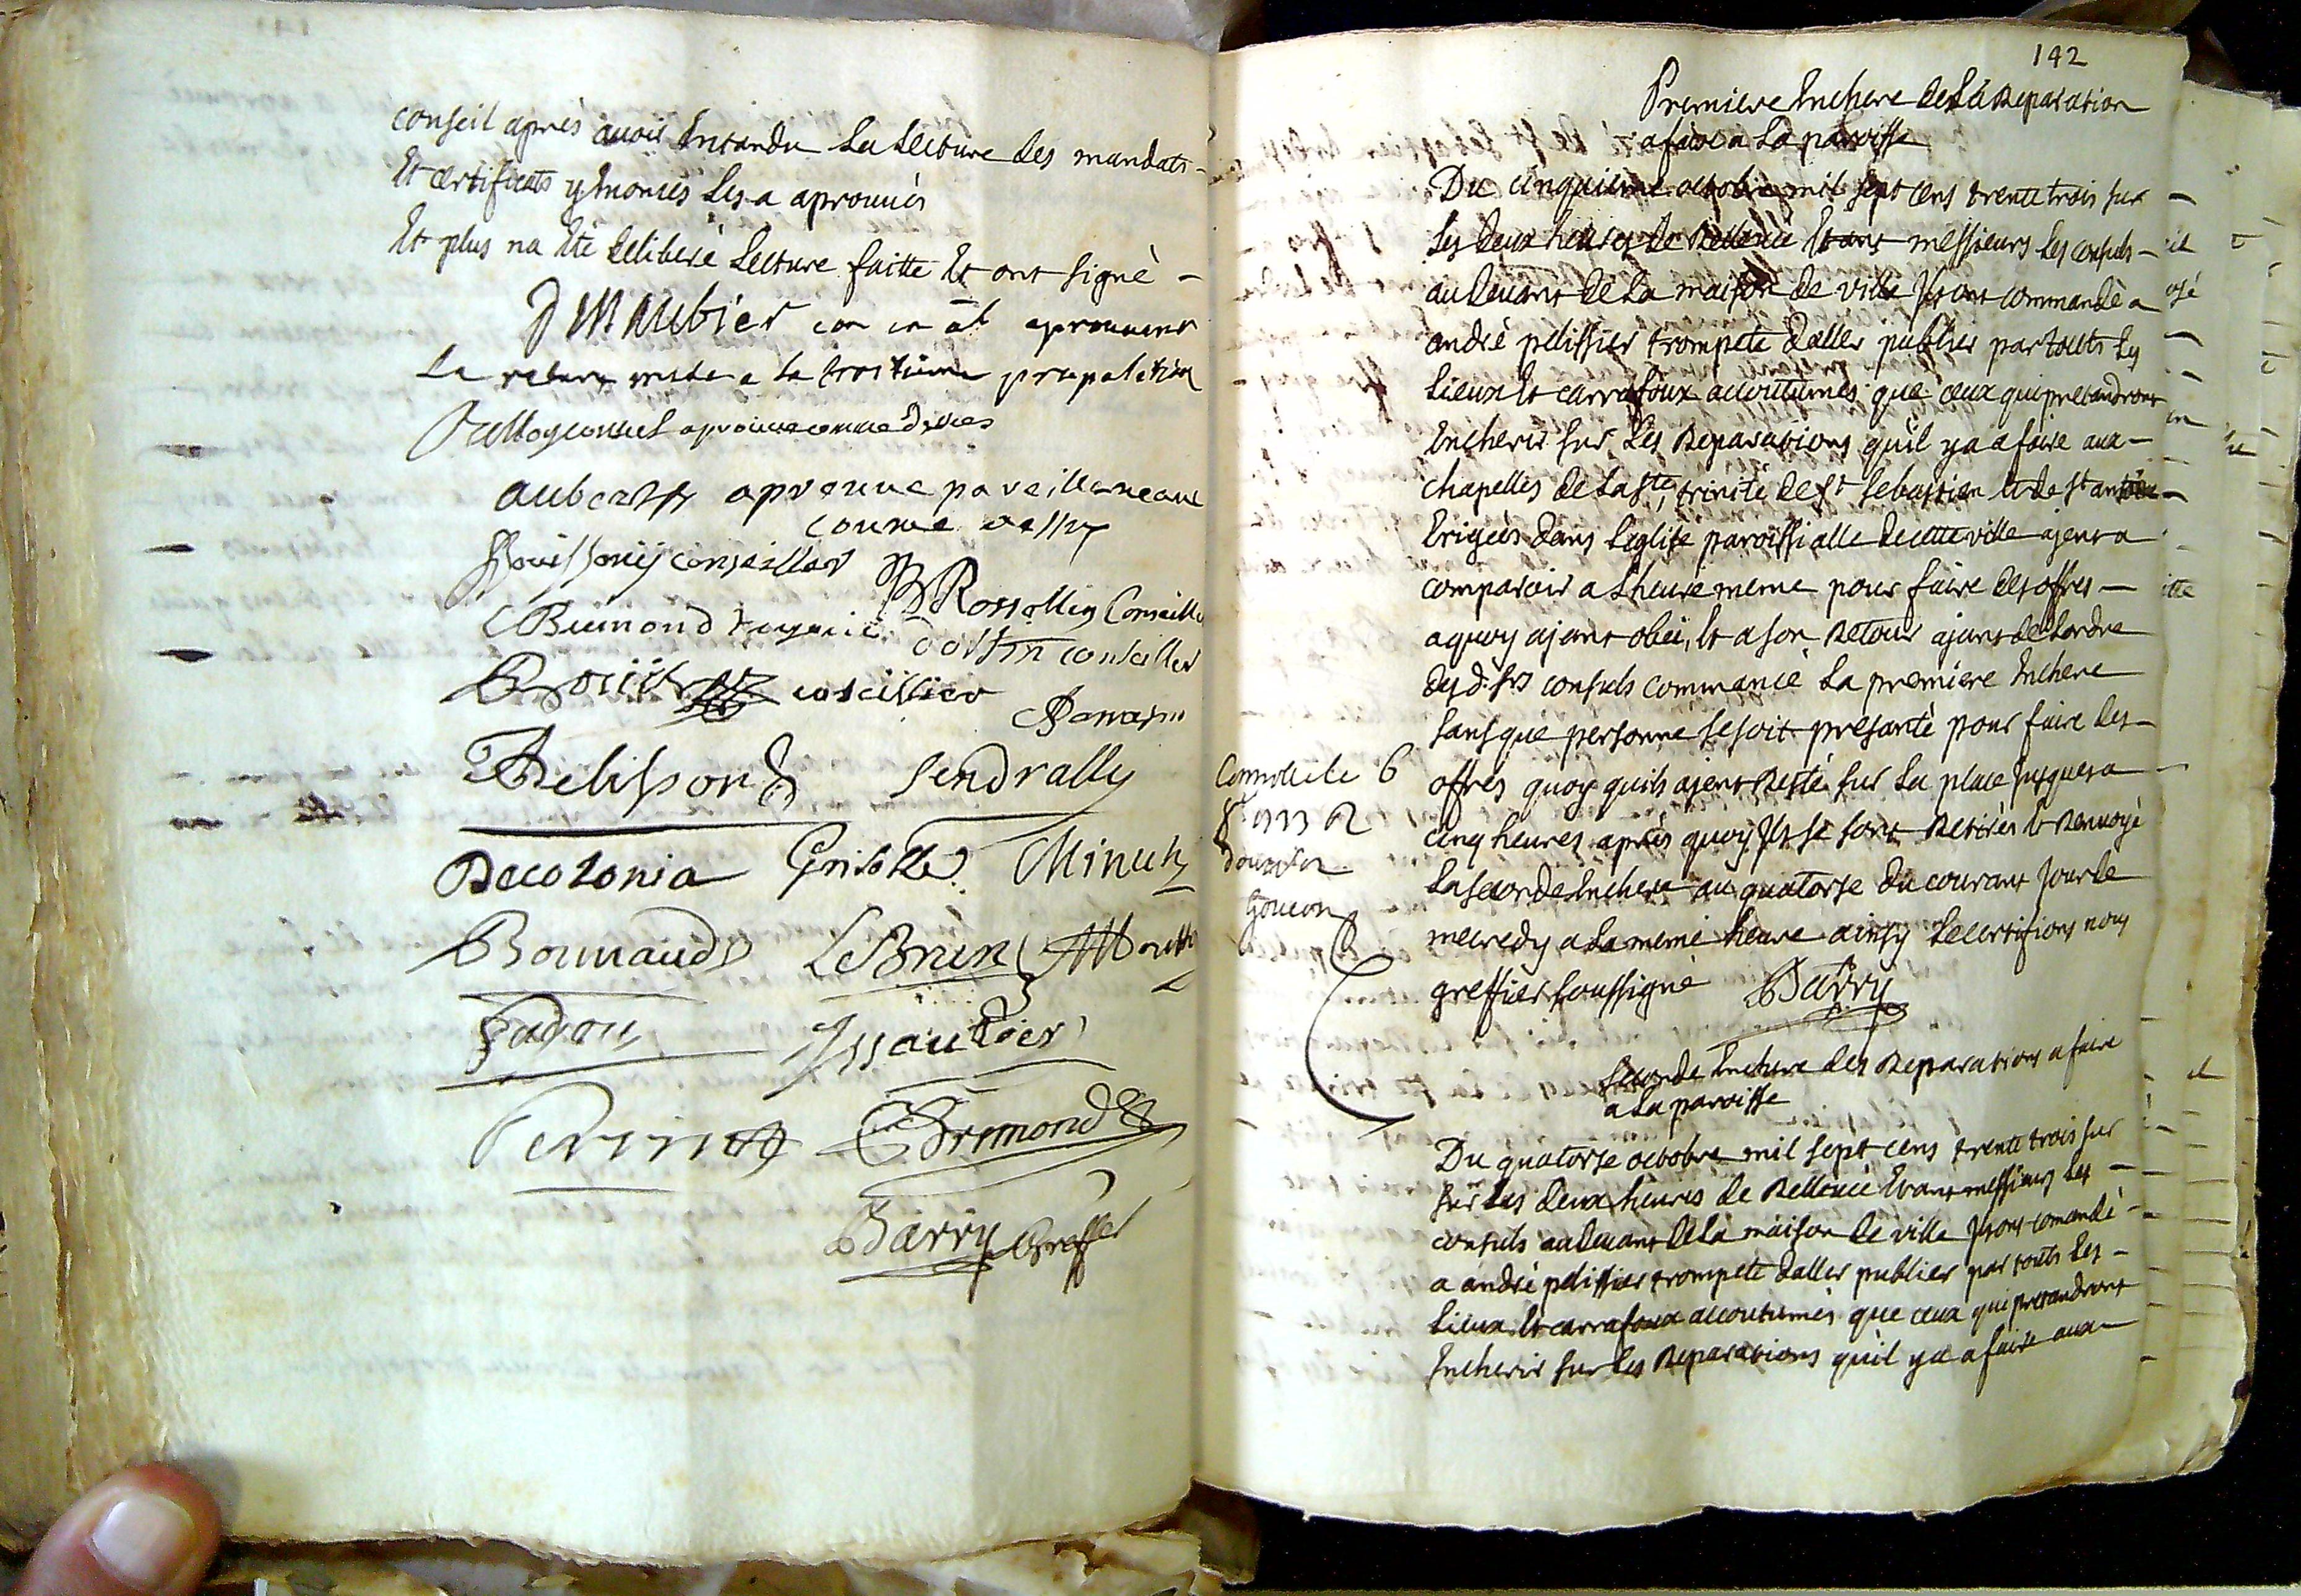 conseil aprés avoir Entandu La Lecture des mandats
Et certificats y Enoncés Les a aprouvés
Et plus na Eté deliberé Lecture faitte Et ont signé
D Maubier con en at aprouvent
La mise a la troisiéme propolition
consul aprouve comme Dessus
aubert aprouve pareillemeant
comme dessus
Bouissony conseiller
B Rossollin Conseille
Bremond
conseiller
Broüilh conseillier
Pelisson
Sendrally
Decolonia
Grisolle
Minuty
Bonnaud
LeBrun
Fadon
Issautier
Perrinet
E Bremond
Barry Greffier
142
Premiere Enchere de La Reparation
a faire a La paroisse
Du cinquieme octobre mil sept cens trente trois sur
Les deux heures de Relleveé Etans messieurs Les consuls
au devant de La maison de ville Ils ont commandé a
andré pelissier trompete daller publier par touts Les
Lieux Et carrafoux accoutumés que ceux qui pretandront
Encherir sur Les Reparations quil y a a faire aux
chapelles de La ste trinité de st Sebastien Et de st antoine
Erigeés dans Leglise paroissialle de cette ville ajent a
comparoir a Lheure meme pour faire des offres
a quoy ajant obei, Et a son Retour ajant de Lordre
des d. srs consuls commancé La premiere Enchere
sans que personne se soit presanté pour faire des
offres quoy quils ajent Resté sur La place Jusques a
cinq heures aprés quoy Ils se sont Retirés Et Renvoyé
La seconde Enchere au quatorse du courant Jour de
mecredy a La meme heure ainsy Le certifions nous
greffier soussigné Barry
Controlle le 6
8bre 1733 R
douze sols
Goujon
Seconde Enchere des Reparations a faire
a La paroisse
Du quatorse octobre mil sept cens trente trois sur
sur Les deux heures de Relleveé Etans messieurs Les
consuls au devant de La maison de ville Ils ont comandé
a andré pelissier trompete daller publier par touts Les
Lieux Et carrafoux accoutumés que ceux qui pretandront
Encherir sur Les Reparations quil y a a faire aux